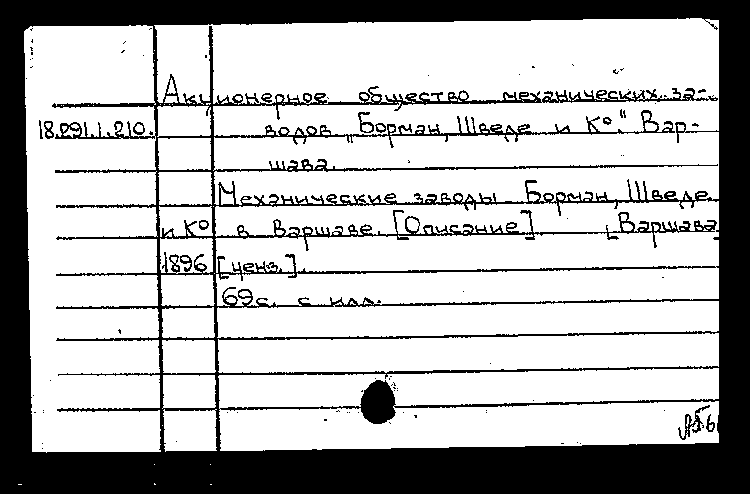 Акционерное общество механических за-
18.291.1.210. водов „Борман, Шведе и К°.“ Вар-
шава.
Механические заводы Борман, Шведе
и К° в Варшаве. [Описание] [Варшава
1896 [ценз.].
69с. с илл.